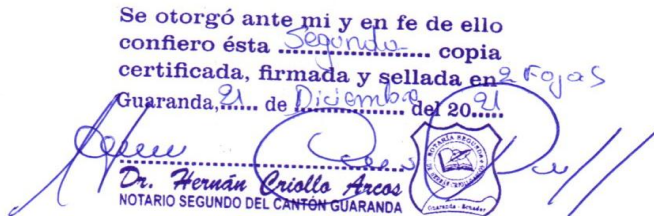 Se otorgó ante mi y en fe de ello
confiero ésta Segunda copia
certificada, firmada y sellada en 2 Fojas
Guaranda, 21 de Diciembre del 2021
NOTARÍA SEGUNDA
Dr. Hernán Criollo Arcos
NOTARIO SEGUNDO DEL CANTÓN GUARANDA
Guaranda - Ecuador